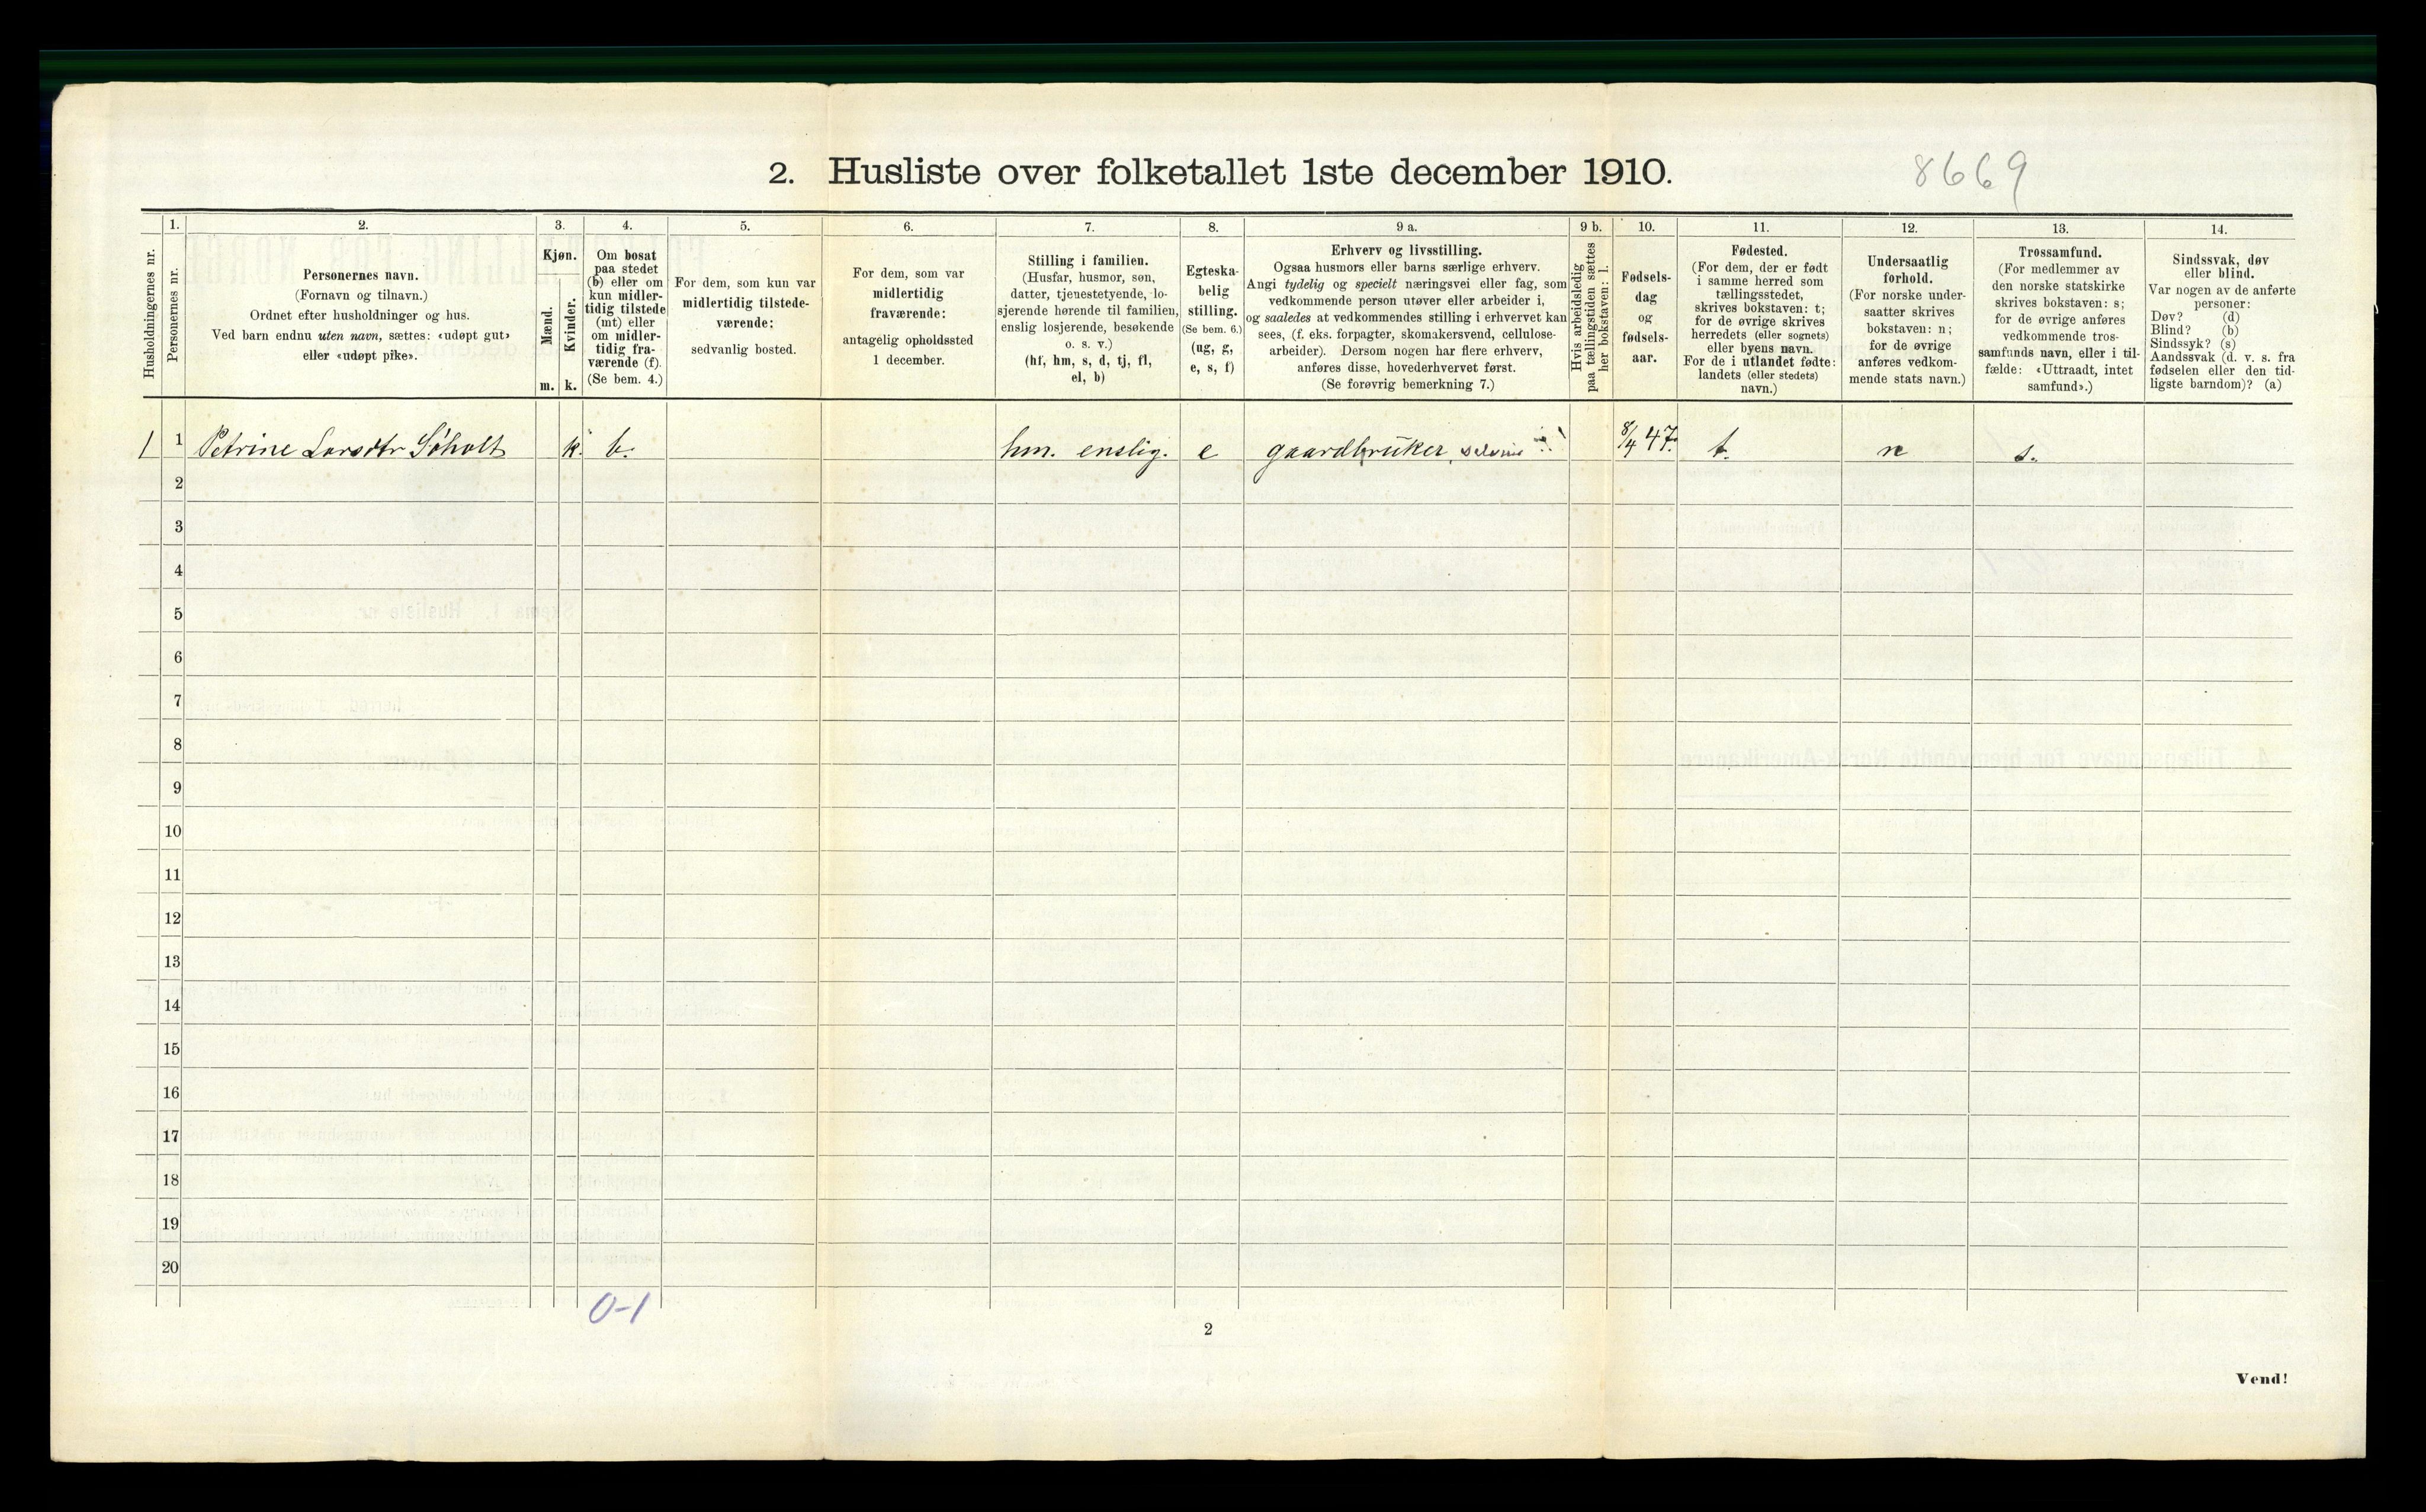 2. Husliste over folketallet 1ste december 1910.
8669
Husholdningernes nr.
1.
Personernes nr.
2.
Personernes navn.
(Fornavn og tilnavn.)
Ordnet efter husholdninger og hus.
Ved barn endnu uten navn, sættes: «udøpt gut»
eller «udøpt pike».
3.
Kjøn.
Mænd.
m.
Kvinder.
k.
4.
Om bosat
paa stedet
(b) eller om
kun midler-
tidig tilstede
(mt) eller
om midler-
tidig fra-
værende (f).
(Se bem. 4.)
5.
For dem, som kun var
midlertidig tilstede-
værende:
sedvanlig bosted.
6.
For dem, som var
midlertidig
fraværende:
antagelig opholdssted
1 december.
7.
Stilling i familien.
(Husfar, husmor, søn,
datter, tjenestetyende, lo-
sjerende hørende til familien,
enslig losjerende, besøkende
o. s. v.)
(hf, hm, s, d, tj, fl,
el, b)
8.
Egteska-
belig
stilling.
(Se bem. 6.)
(ug, g,
e, s, f)
9 a.
Erhverv og livsstilling.
Ogsaa husmors eller barns særlige erhverv.
Angi tydelig og specielt næringsvei eller fag, som
vedkommende person utøver eller arbeider i,
og saaledes at vedkommendes stilling i erhvervet kan
sees, (f. eks. forpagter, skomakersvend, cellulose-
arbeider). Dersom nogen har flere erhverv,
anføres disse, hovederhvervet først.
(Se forøvrig bemerkning 7.)
9 b.
Hvis arbeidsledig
paa tællingstiden sættes
her bokstaven: l.
10.
Fødsels-
dag
og
fødsels-
aar.
11.
Fødested.
(For dem, der er født
i samme herred som
tællingsstedet,
skrives bokstaven: t;
for de øvrige skrives
herredets (eller sognets)
eller byens navn.
For de i utlandet fødte:
landets (eller stedets)
navn.)
12.
Undersaatlig
forhold.
(For norske under-
saatter skrives
bokstaven: n;
for de øvrige
anføres vedkom-
mende stats navn.)
13.
Trossamfund.
(For medlemmer av
den norske statskirke
skrives bokstaven: s;
for de øvrige anføres
vedkommende tros-
samfunds navn, eller i til-
fælde: «Uttraadt, intet
samfund».)
14.
Sindssvak, døv
eller blind.
Var nogen av de anførte
personer:
Døv? (d)
Blind? (b)
Sindssyk? (s)
Aandssvak (d. v. s. fra
fødselen eller den tid-
ligste barndom)? (a)
1 1 Petrine Larsdtr Søholt k. b. hm. enslig. e gaardbruker, 8/4 47. t. n s.
2
3
4
5
6
7
8
9
10
11
12
13
14
15
16
17
18
19
20
0-1
2
Vend!